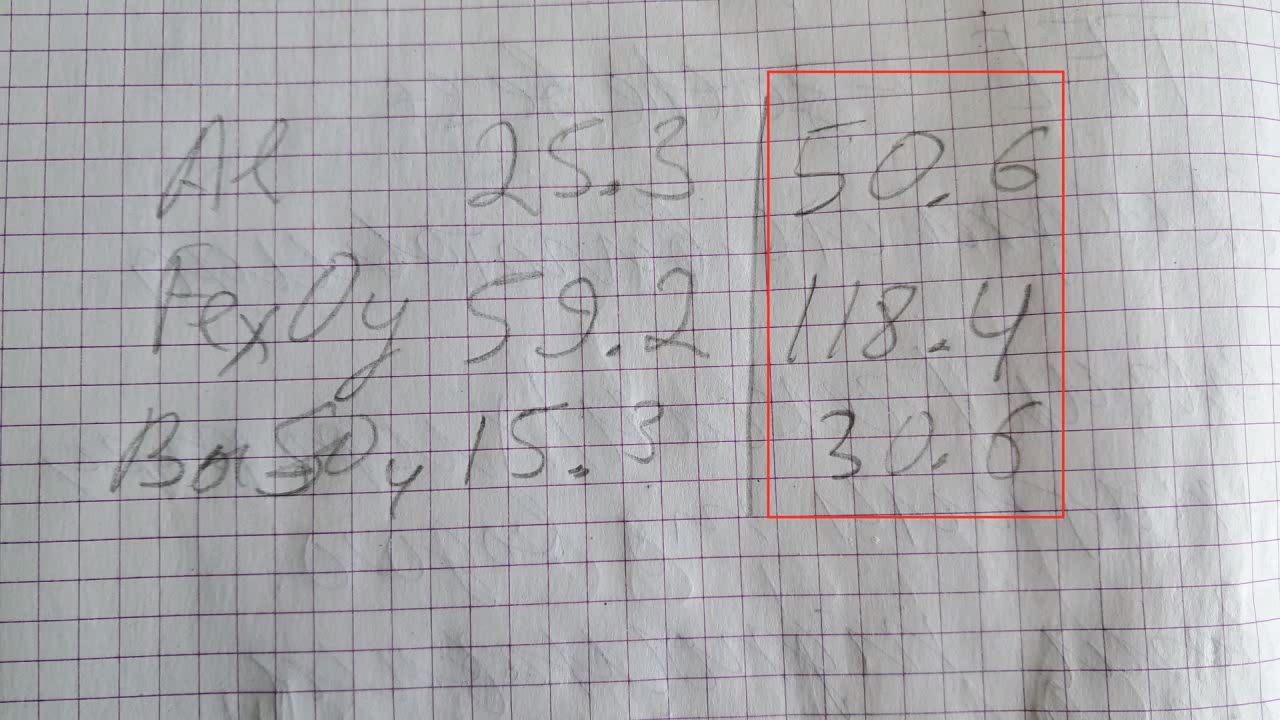 Al 25.3 | 50.6
FexOy 59.2 | 118.4
BaSO4 15.3 | 30.6